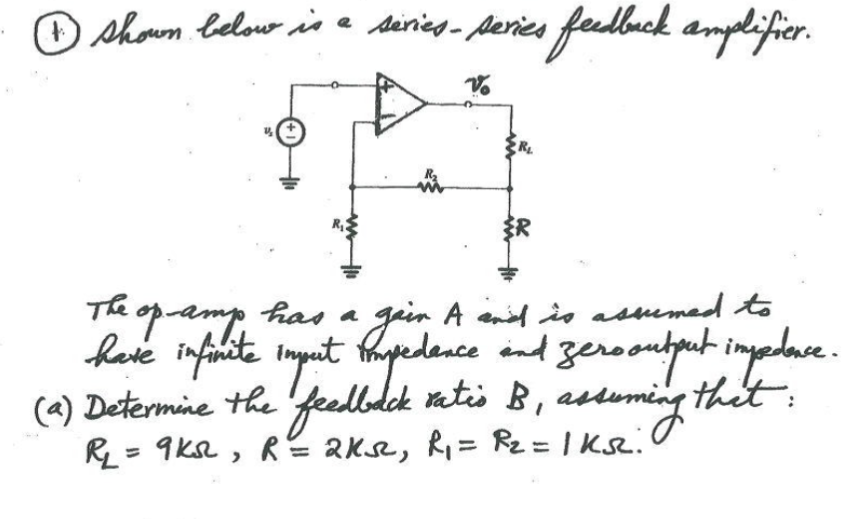 ① Shown below is a series-series feedback amplifier.
Vo
+
Vs + -
-
RL
R2
R1
R
The op-amp has a gain A and is assumed to
have infinite input impedance and zero output impedance.
(a) Determine the feedback ratio B, assuming that:
RL = 9KΩ, R = 2KΩ, R1 = R2 = 1KΩ.